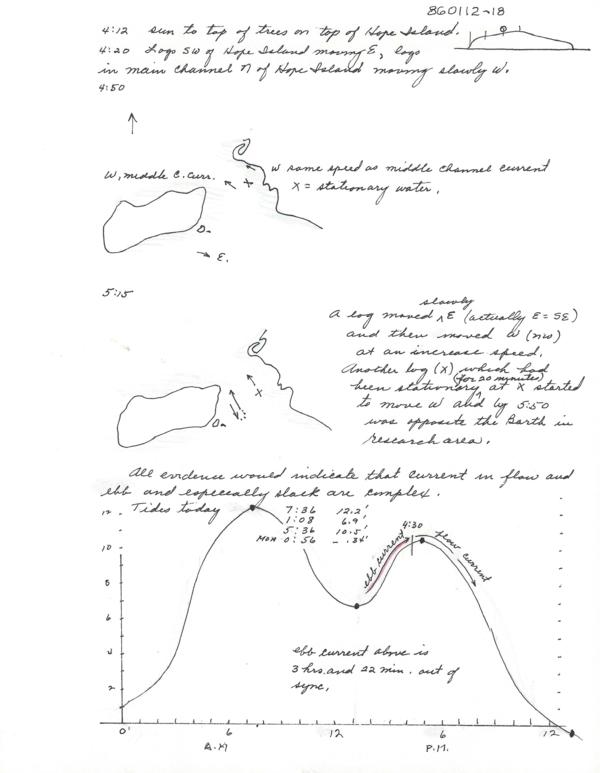 860112-18
4:12 sun to top of trees on top of Hope Island.
4:20 Logs SW of Hope Island moving E, logs
in main channel N of Hope Island moving slowly W.
4:50
W same speed as middle channel current
W, middle C. Curr.
X = stationary water.
E.
5:15
slowly
A log moved ^ E (actually E = SE)
and then moved W (NW)
at an increase speed.
Another log (X) which had
(for 20 minutes)
been stationary ^ at X started
to move W and by 5:50
was opposite the Barth in
research area.
All evidence would indicate that current in flow and
ebb and especially slack are complex.
Tides today 7:36 12.2'
1:08 6.9'
5:36 10.5'
Mon 0:56 -.34'
4:30
ebb current
flow current
12
10
8
6
4
2
ebb current above is
3 hrs. and 22 min. out of
sync.
0 6 12 6 12
A.M P.M.